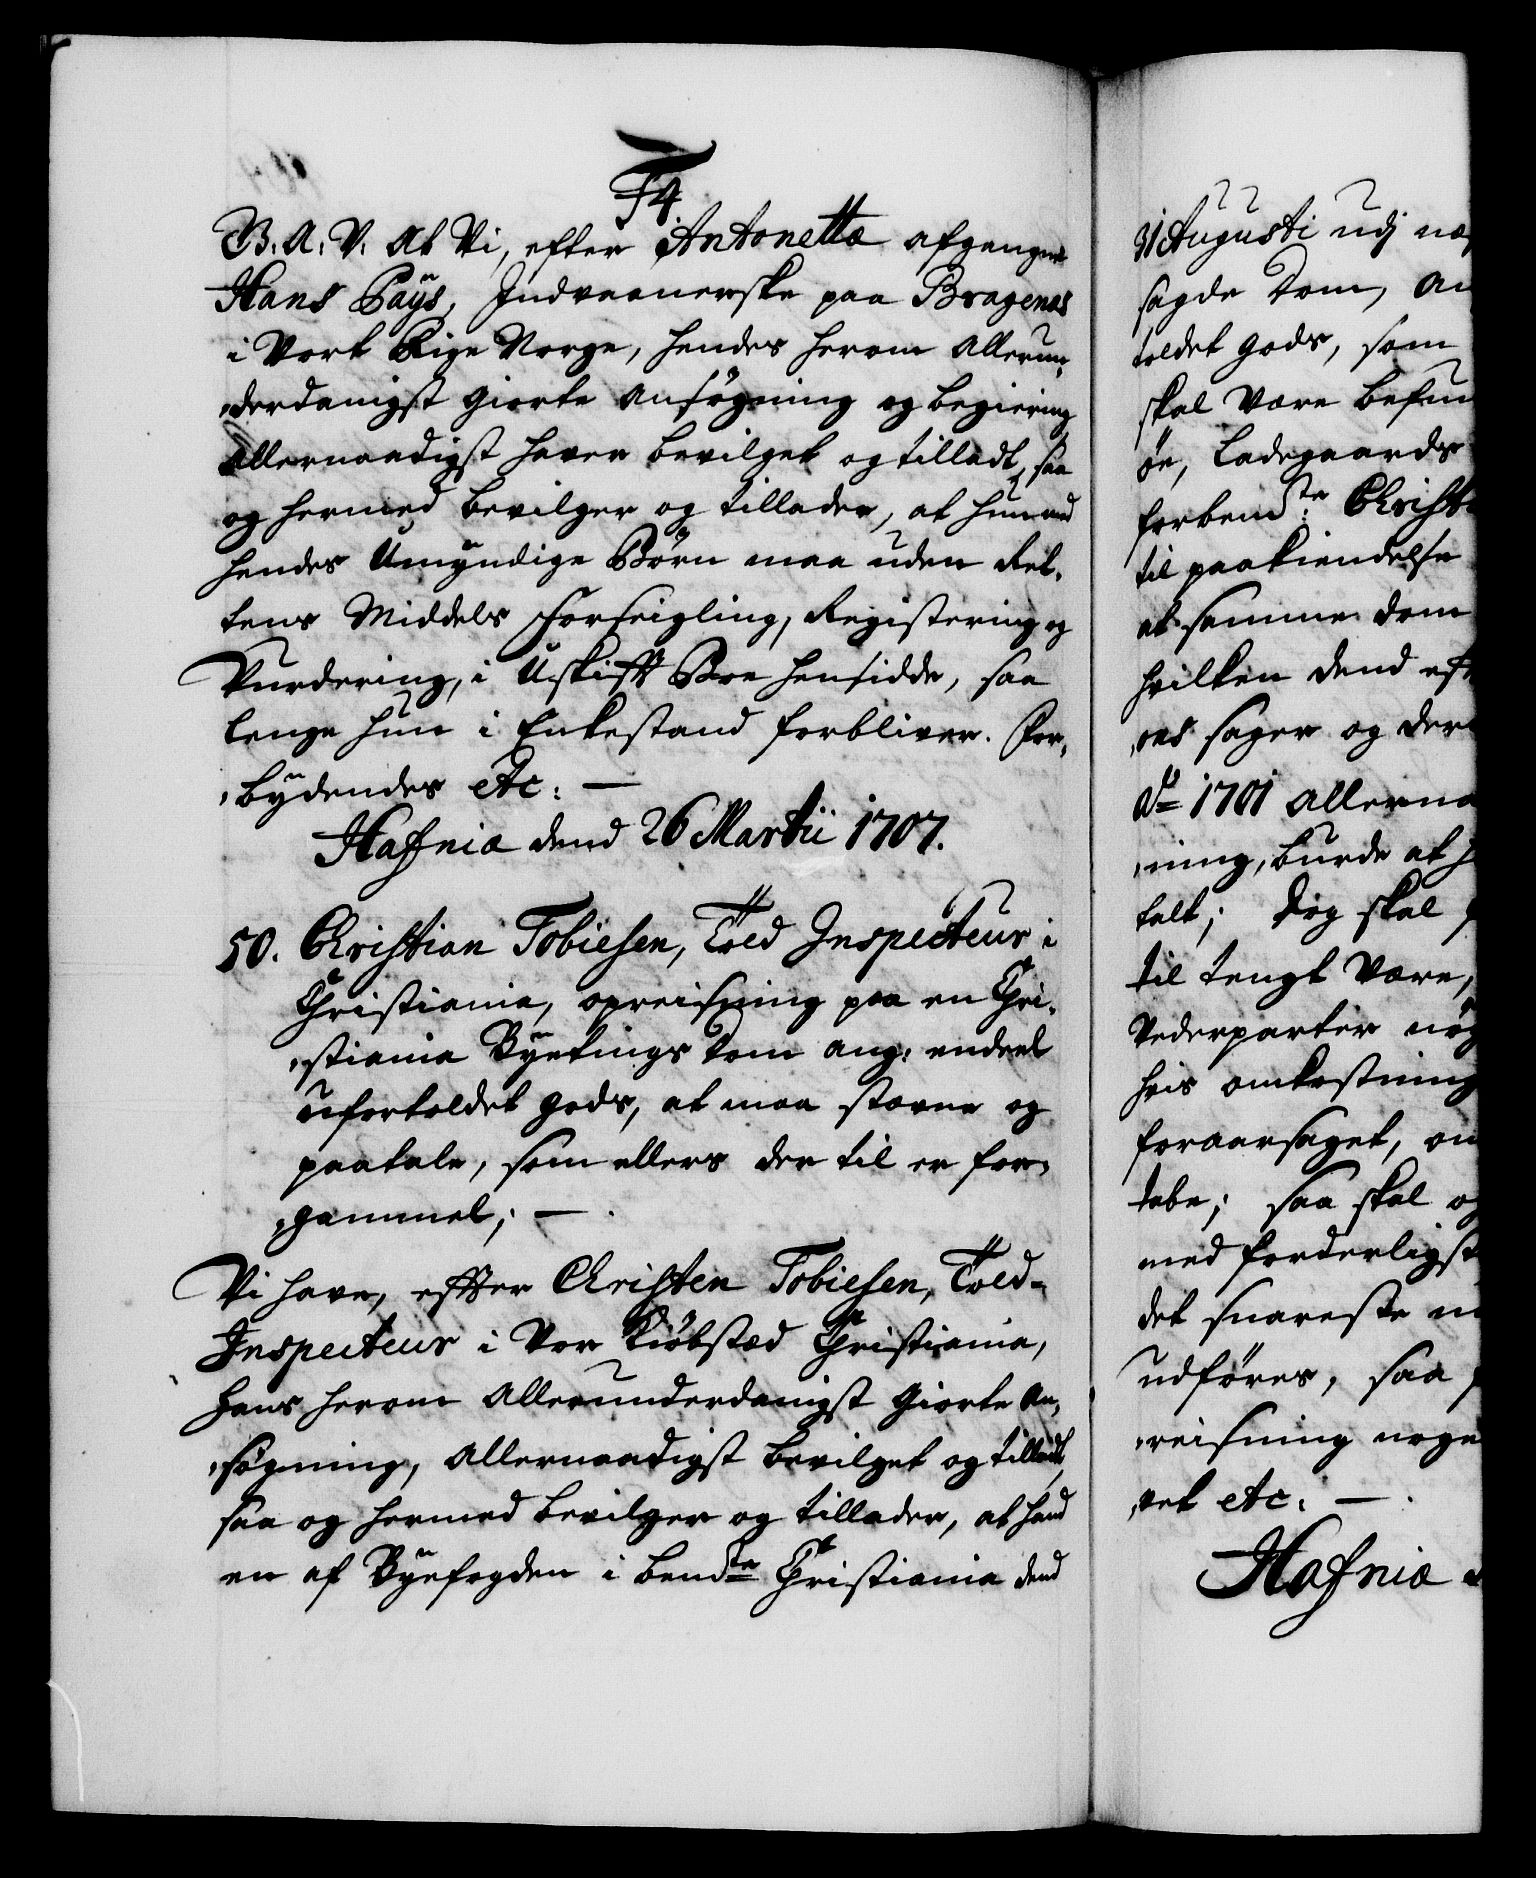 F4
B. A. V. At Vi, efter Antonetta afgangne
Hans Pays, Indvaanerske paa Bragenæs
i Vort Rige Norge, hendes herom Allerun-
derdanigst giorte Ansøgning og begiering
Allernaadigst haver bevilget og tilladt, saa
og hermed bevilger og tillader, at hun med
hendes Umyndige Børn maa uden Ret-
tens Middels Forseigling, Registering og
Vurdering, i Uskifft Boe hensidde, saa
lenge hun i Enkestand forbliver. For-
bydendes etc: —
Hafniæ dend 26 Martii 1707.
50. Christian Tobiesen, Told Inspecteur i
Christiania, opreisning paa en Chri-
stiania Byetings Dom ang: endeel
ufortoldet gods, at maa stævne og
paatale, som ellers der til er for-
gammel; — .
Vi have, effter Christen Tobiesen, Told-
Inspecteur i Vor Kiøbstæd Christiania,
hans herom Allerunderdanigst giorte An-
søgning, Allernaadigst bevilget og tilladt,
saa og hermed bevilger og tillader, at hand
en af Byefogden i bemd:te Christiania dend
31 Augusti udj
sagde Dom,
toldet gods, som
skal være
øe, Ladegaards
forbemd:te
til paakiendelse
at samme dom
hvilken dend
sager og
Ao 1701
ning, burde at
talt; Dog skal
til tengt være,
Vederparter
hvis omkostning
foraarsaget,
tabe; saa skal
med forderligst
det snareste
udføres, saa
reisning
vet etc: — .
Hafniæ